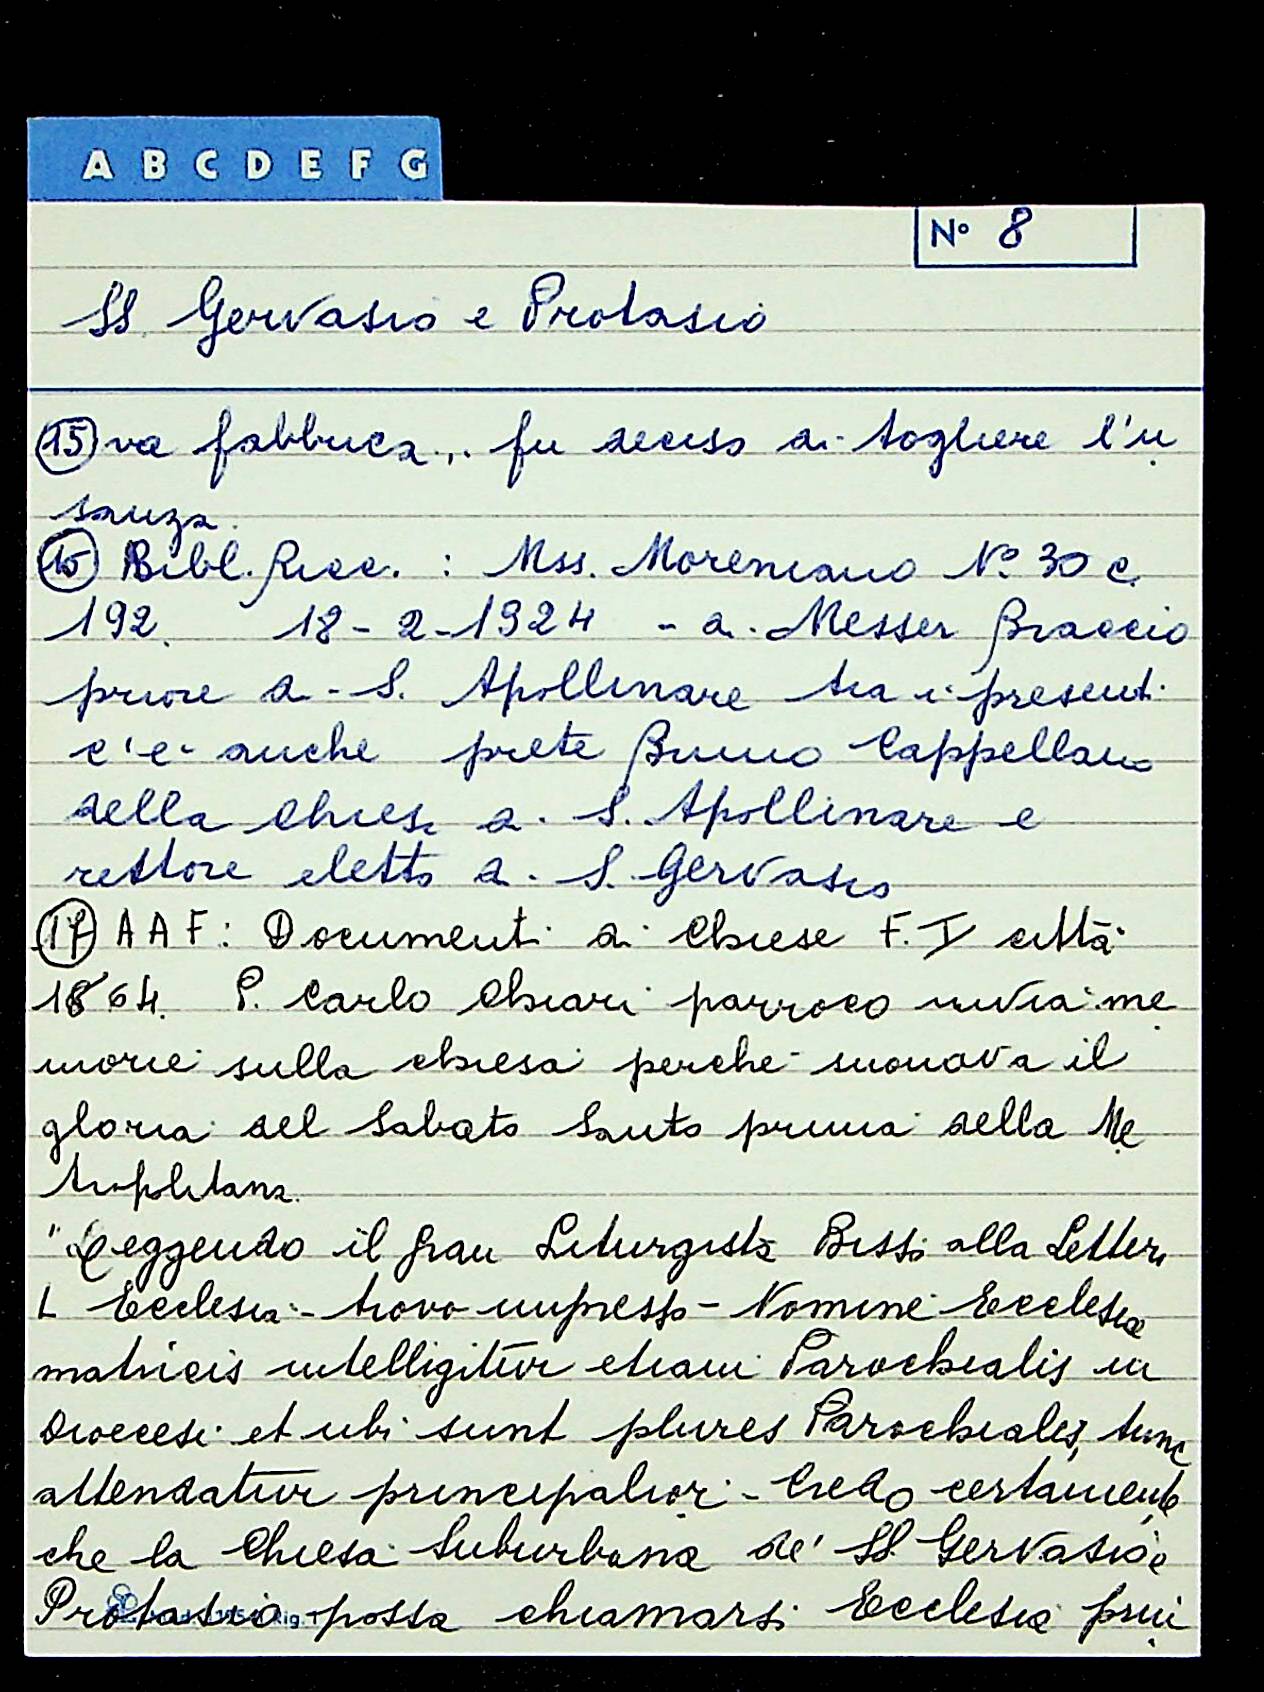 A B C D E F G
N° 8
SS Gervasio e Protasio
15 va fabbrica... fu deciso di togliere l'u
sanza.
16 Bibl. Ricc. : Mss. Moreniano N° 30 c.
192. 18-2-1924 - a. Messer Braccio
priore di S. Apollinare tra i presenti
c'è anche prete Bruno Cappellano
della Chiesa di S. Apollinare e
rettore eletto di S. Gervasio
17 AAF: Documenti di Chiese F. I città
1864. P. Carlo Chiari parroco invia me
morie sulla chiesa perché suonava il
gloria del Sabato Santo prima della Me
tropolitana.
"Leggendo il gran Liturgista Bissi alla Lettera
L Ecclesia - trovo impresso - Nomine Ecclesiæ
matricis intelligitur etiam Parochialis in
Diocesi et ubi sunt plures Parochiales, tunc
attendatur principalior - Credo certamente
che la Chiesa Suburbana de' SS Gervasio e
Protasio possa chiamarsi Ecclesia prin